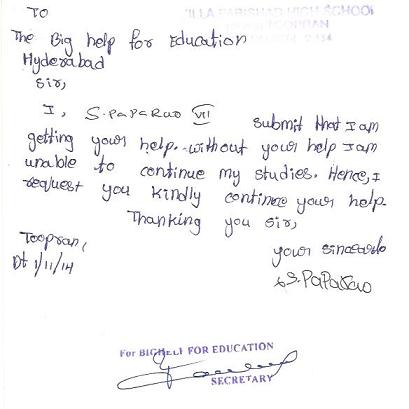 TO
ZILLA PARISHAD HIGH SCHOOL
TOOPRAN
The Big help for Education
Hyderabad
Sir,
I, S. PAPARAO VII submit that I am
getting your help. without your help I am
unable to continue my studies. Hence, I
request you kindly continue your help.
Thanking you sir,
Toopran,
Dt 1/11/14
your
S. PaPaRao
For BIGHELP FOR EDUCATION
SECRETARY